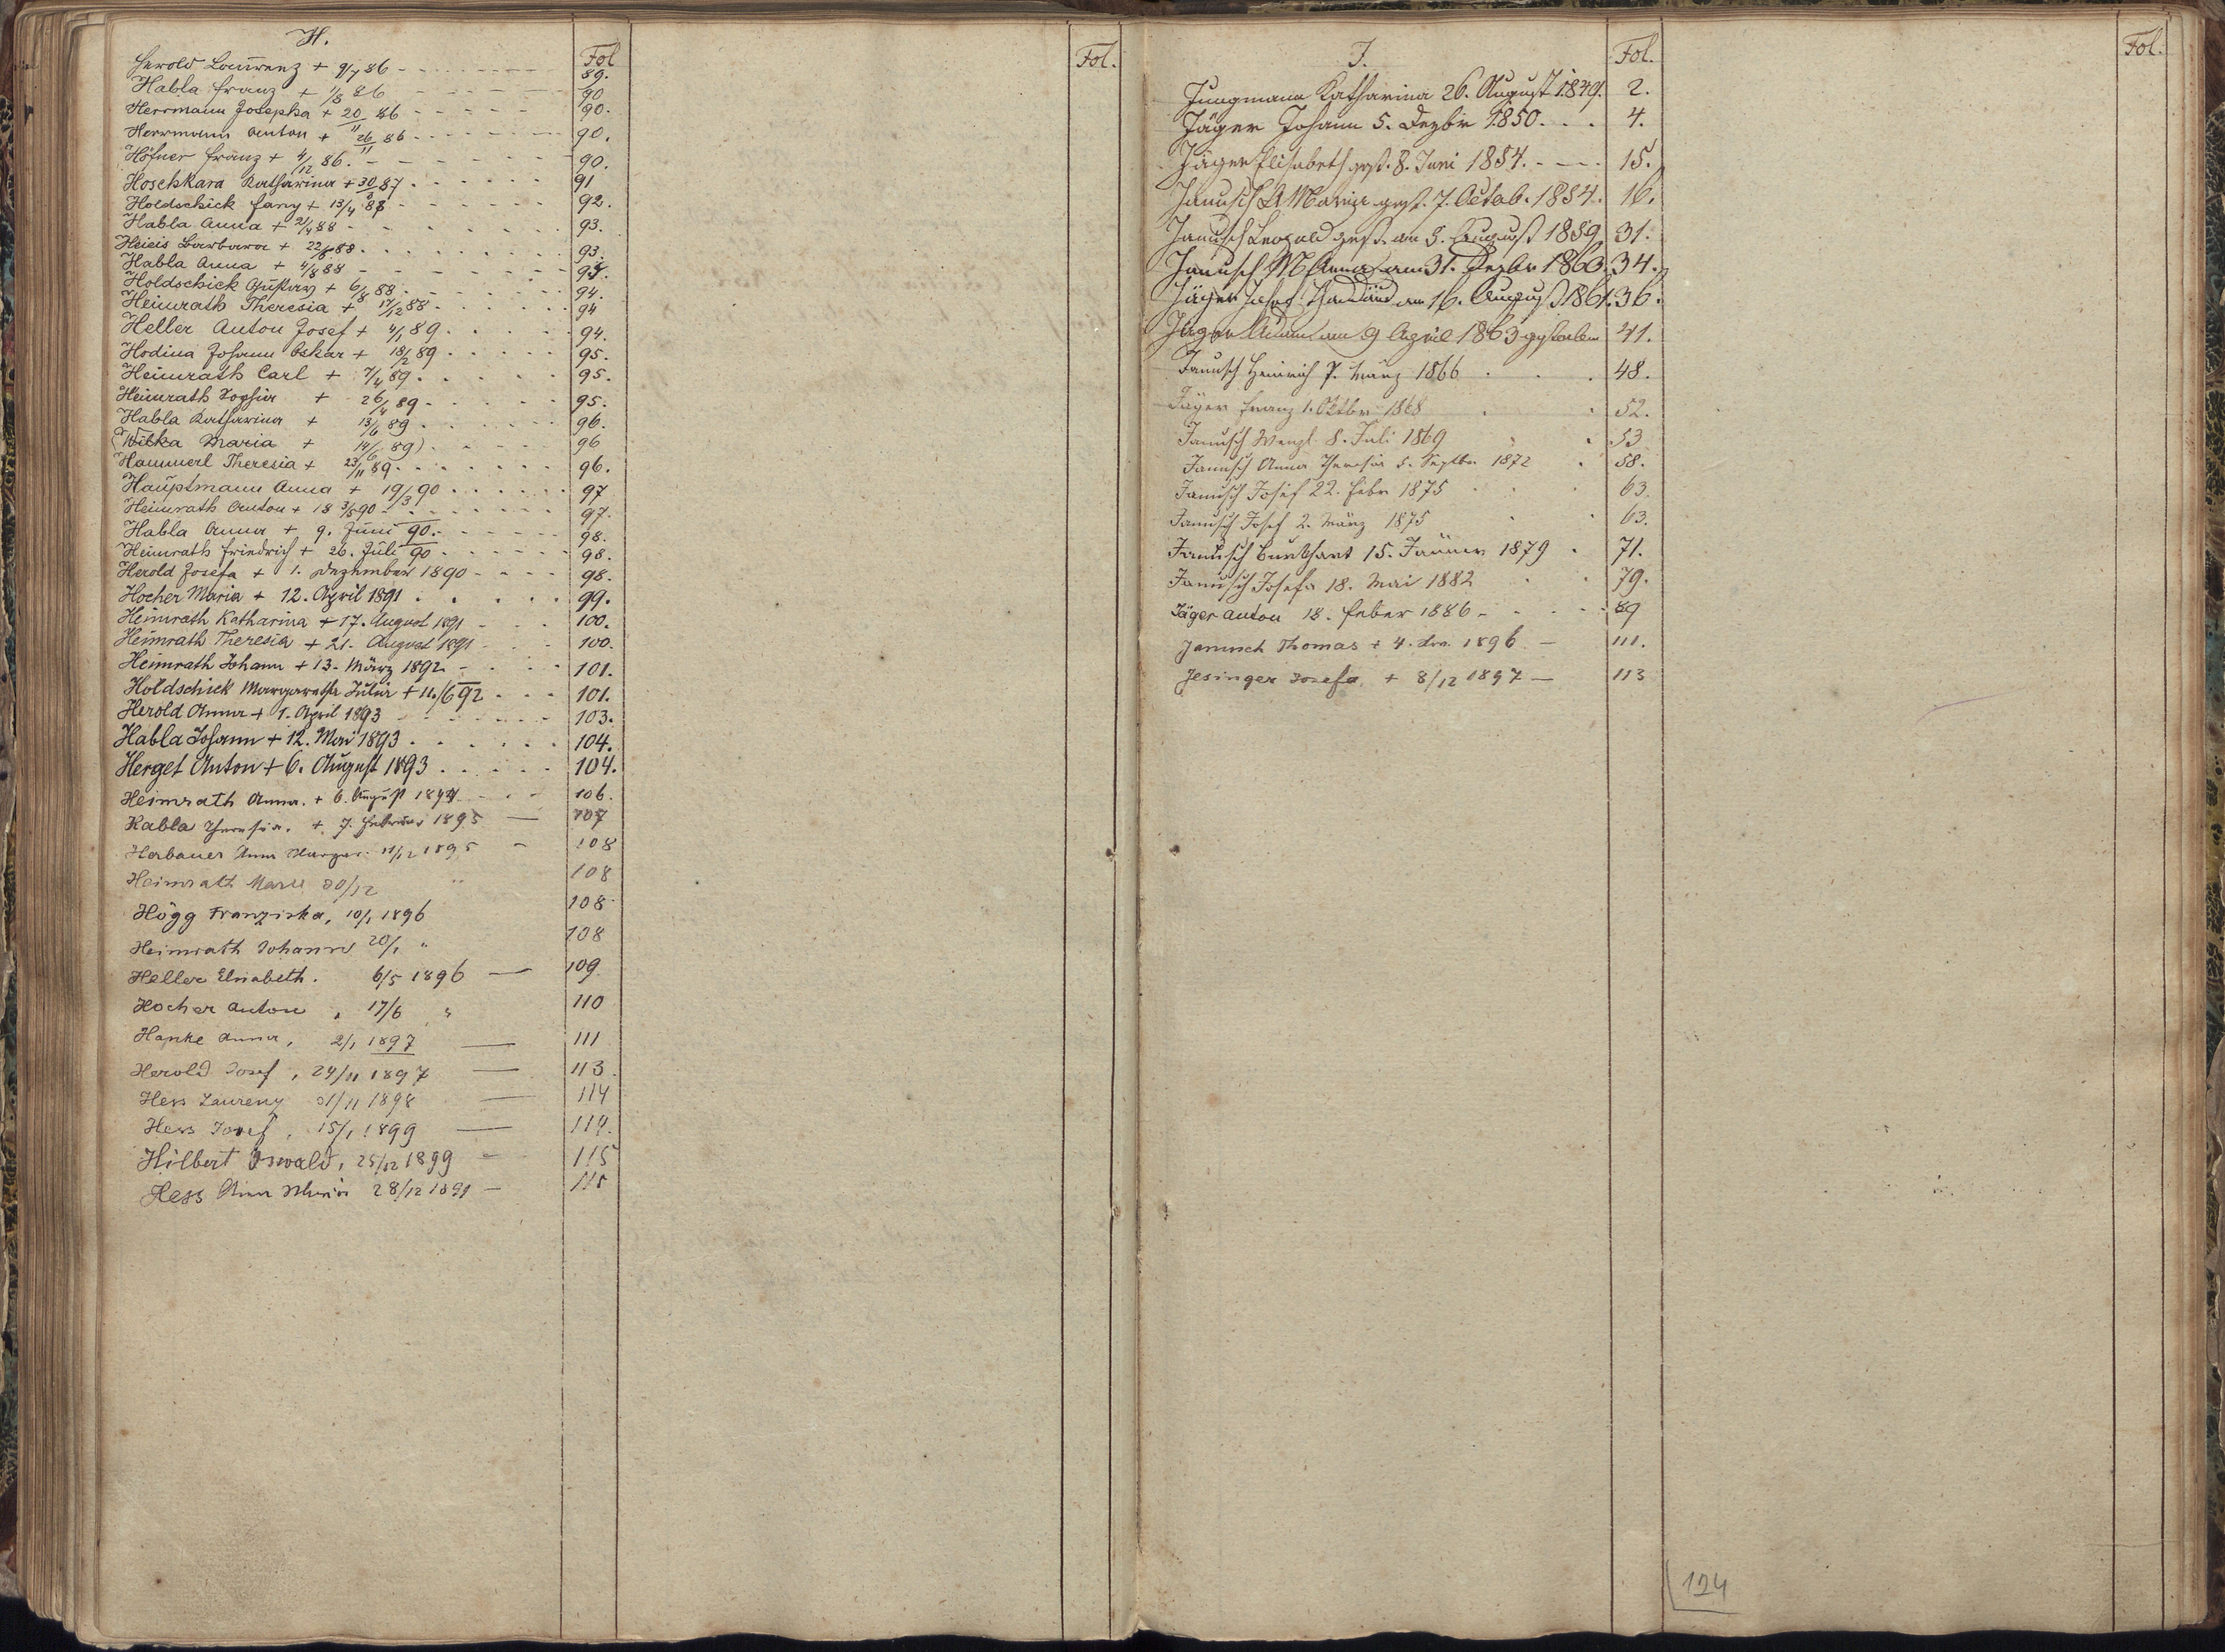 H.
Fol
Herold Laurenz + 9/7 86 - 89.
Habla Franz + 1/8 86 - 90
Herrmann Josepha + 20/11 86 - 90.
Herrmann Anton + 26/11 86 - 90.
Höfner Franz + 4/12 86. - 90.
Hoschkara Katharina + 87 . 91
Holdschick Fany + 13/4 87 - 92.
Habla Anna + 21/4 88 - 93.
Heieis Barbara + 22/6 88 . 93.
Habla Anna + 4/8 88 - 94.
Holdschick Gustav + 6/8 88 - 94.
Heimrath Theresia + 17/12 88 - 94
Heller Anton Josef + 4/1 89 . 94.
Hodina Johann Oskar + 18/2 89 . 95.
Heimrath Carl + 7/4 89 . 95.
Heimrath Sophia + 26/4 89 - 95.
Habla Katharina + 13/6 89 . 96.
(Wibka Maria + 14/6 89) . 96
Hammerl Theresia + 23/11 89 - 96.
Hauptmann Anna + 19/3 90 . 97
Heimrath Anton + 18 3/5 90 - 97.
Habla Anna + 9. Juni 90. - 98.
Heimrath Friedrich + 26. Juli 90 - 98.
Herold Josefa + 1. Dezember 1890 - 98.
Hocher Maria + 12. April 1891 . 99.
Heimrath Katharina + 17. August 1891 - 100.
Heimrath Theresia + 21. August 1891 - 100.
Heimrath Johann + 13. März 1892 - 101.
Holdschick Margaretha Julia + 11./6 92 - 101.
Herold Anna + 1. April 1893 - 103.
Habla Johann + 12. Mai 1893 . 104.
Herget Anton + 6. August 1893 . 104.
Heimrath Anna. + 6. August 1894 - 106.
Habla Theresia. + 7. Februar 1895 — 107
Herbauer Anna 11/12 1895 - 108
Heimrath Marie 30/12 " 108
Högg Franziska, 10/1 1896 108
Heimrath Johann 20/1 " 108
Heller Elisabeth. 6/5 1896 — 109
Hocher Anton , 17/6 " 110
Hanke Anna, 2/1 1897 — 111
Herold Josef , 24/11 1897 — 113.
Hess Laurenz 1/11 1898 — 114
Hess Josef , 15/1 1899 — 114.
Hilbert Oswald, 25/12 1899 - 115
Hess Anna Maria 28/12 1899 - 115
Fol.
J.
Fol.
Jungmann Katharina 26. August 1849. 2.
Jäger Johann 5. Dezbr 1850. . . 4.
Jäger Elisabeth gest. 8. Juni 1854. - - - 15.
Janusch A Maria gest. 7. Octob. 1854. 16.
Janusch Leopold gest. am 5. August 1859 31.
Janusch M Anna am 31. Dezbr 1860. 34.
Jäger am 16. August 1861. 36.
Jäger Adam am 9 April 1863 gestorben 41.
Janusch Heinrich 7. März 1866 . . 48.
Jäger Franz 1. Oktbr 1868 . . 52.
Janusch Wenzl. 8. Juli 1869 . 53
Janusch Anna Theresia 5. Septbr 1872 . 58.
Janusch Josef 22. Febr 1875 . . 63.
Janusch Josef 2. März 1875 . . 63.
Janusch Burkhart 15. Jänner 1879 . 71.
Janusch Josefa 18. Mai 1882 . . 79.
Jäger Anton 18. Feber 1886 - - . 89
Janusch Thomas + 4. 1896 — 111.
Jesinger Josefa. + 8/12 1897 — 113
Fol.
124